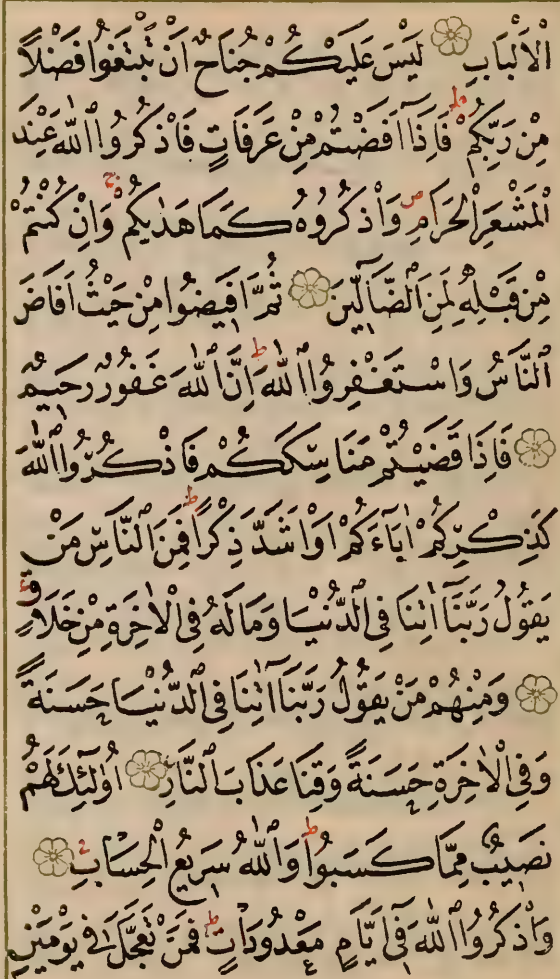 الْاَلْبَابِ لَيْسَ عَلَيْكُمْ جُنَاحٌ اَنْ تَبْتَغُوا فَضْلًا
مِنْ رَبِّكُمْ فَاِذَٓا اَفَضْتُمْ مِنْ عَرَفَاتٍ فَاذْكُرُوا اللّٰهَ عِنْدَ
الْمَشْعَرِ الْحَرَامِ وَاذْكُرُوهُ كَمَا هَدٰيكُمْ وَاِنْ كُنْتُمْ
مِنْ قَبْلِهٖ لَمِنَ الضَّٓالّٖينَ ثُمَّ اَفٖيضُوا مِنْ حَيْثُ اَفَاضَ
النَّاسُ وَاسْتَغْفِرُوا اللّٰهَ اِنَّ اللّٰهَ غَفُورٌ رَحٖيمٌ
فَاِذَا قَضَيْتُمْ مَنَاسِكَكُمْ فَاذْكُرُوا اللّٰهَ
كَذِكْرِكُمْ اٰبَٓاءَكُمْ اَوْ اَشَدَّ ذِكْرًا فَمِنَ النَّاسِ مَنْ
يَقُولُ رَبَّنَٓا اٰتِنَا فِي الدُّنْيَا وَمَا لَهُ فِي الْاٰخِرَةِ مِنْ خَلَاقٍ
وَمِنْهُمْ مَنْ يَقُولُ رَبَّنَٓا اٰتِنَا فِي الدُّنْيَا حَسَنَةً
وَفِي الْاٰخِرَةِ حَسَنَةً وَقِنَا عَذَابَ النَّارِ اُولٰٓئِكَ لَهُمْ
نَصٖيبٌ مِمَّا كَسَبُوا وَاللّٰهُ سَرٖيعُ الْحِسَابِ
وَاذْكُرُوا اللّٰهَ فٖٓي اَيَّامٍ مَعْدُودَاتٍ فَمَنْ تَعَجَّلَ فٖي يَوْمَيْنِ